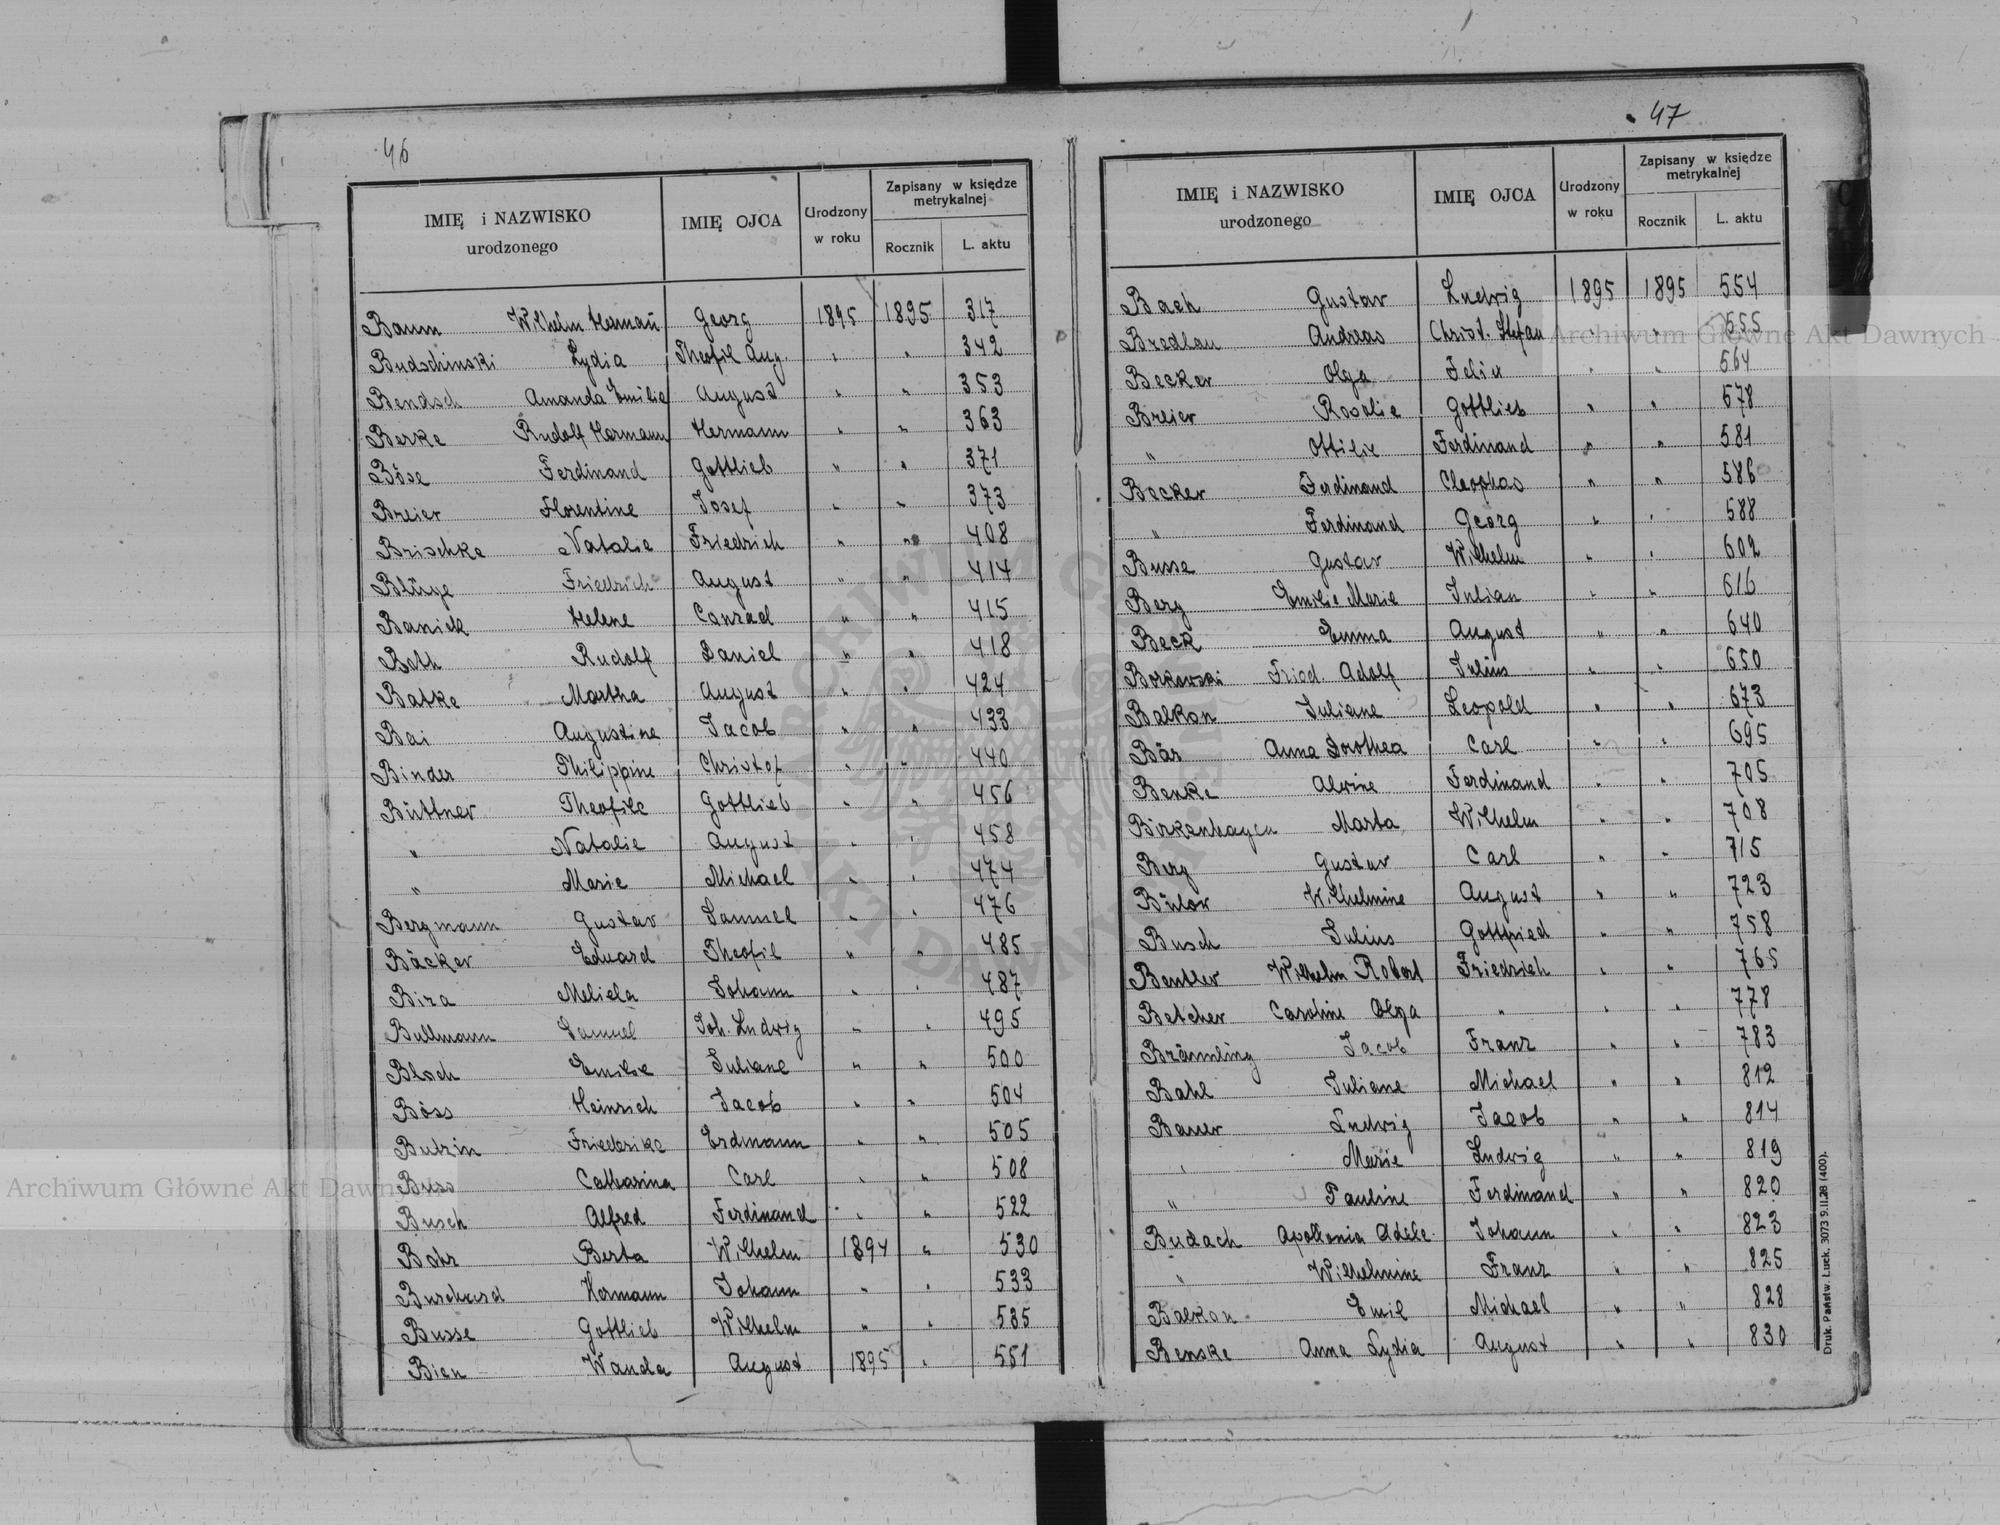 46
IMIĘ i NAZWISKO urodzonego IMIĘ OJCA Urodzony w roku Zapisany w księdze metrykalnej Rocznik L. aktu
Baum Wilhelm Hermann Georg 1895 1895 317
Budschinski Lydia Theofil Aug. " " 342
Bendsch Amanda Emilie August " " 353
Berke Rudolf Hermann Hermann " " 363
Böse Ferdinand Gottlieb " " 371
Breier Florentine Josef " " 373
Brischke Natalie Friedrich " " 408
Blüge Friedrich August " " 414
Banick Helene Conrad " " 415
Both Rudolf Daniel " " 418
Batke Martha August " " 424
Bai Augustine Jacob " " 433
Binder Philippine Christof " " 440
Büttner Theofile Gottlieb " " 456
" Natalie August " " 458
" Marie Michael " " 474
Bergmann Gustav Samuel " " 476
Bäcker Eduard Theofil " " 485
Bira Meliela Johann " " 487
Bullmann Samuel Joh. Ludwig " " 495
Bloch Emilie Juliane " " 500
Böss Heinrich Jacob " " 504
Butzin Friederike Erdmann " " 505
Buss Catharina Carl " " 508
Busch Alfred Ferdinand " " 522
Bohr Berta Wilhelm 1894 " 530
Burchard Hermann Johann " " 533
Busse Gottlieb Wilhelm " " 535
Bien Wanda August 1895 " 551
47
IMIĘ i NAZWISKO urodzonego IMIĘ OJCA Urodzony w roku Zapisany w księdze metrykalnej Rocznik L. aktu
Bach Gustav Ludwig 1895 1895 554
Bredlau Andreas Christ. Stefan " " 555
Becker Olga Felix " " 564
Breier Rosalie Gottlieb " " 578
" Ottilie Ferdinand " " 581
Becker Ferdinand Cleophas " " 586
" Ferdinand Georg " " 588
Busse Gustav Wilhelm " " 602
Berg Emilie Marie Julian " " 616
Beck Emma August " " 640
Borkowski Fried. Adolf Julius " " 650
Balkon Juliane Leopold " " 673
Bär Anna Dorothea Carl " " 695
Benke Alwine Ferdinand " " 705
Birkenhagen Marta Wilhelm " " 708
Berg Gustav Carl " " 715
Bülow Wilhelmine August " " 723
Busch Julius Gottfried " " 758
Beutler Wilhelm Robert Friedrich " " 765
Betcher Caroline Olga " " " 778
Brämling Jacob Franz " " 783
Bahl Juliane Michael " " 812
Bauer Ludwig Jacob " " 814
" Marie Ludwig " " 819
" Pauline Ferdinand " " 820
Budach Apollonia Adele Johann " " 823
" Wilhelmine Franz " " 825
Balkon Emil Michael " " 828
Benske Anna Lydia August " " 830
Druk. Państw. Łuck. 3073 9.II.28 (400).
Archiwum Główne Akt Dawnych
Archiwum Główne Akt Dawnych
ARCHIWUM GŁÓWNE AKT DAWNYCH